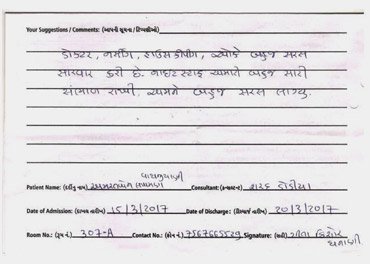 Your Suggestions / Comments: (આપની સૂચના / ટિપ્પણીઓ)
ડોકટર, નર્સીંગ, હાઉસકીપીંગ, બધાએ બહુજ સરસ
સારવાર કરી છે. નાઈટ સ્ટાફ અમારી બહુજ સારી
સંભાળ રાખી, અમને બહુજ સરસ લાગ્યુ.
Patient Name: (દર્દીનું નામ) Consultant: (કન્સલ્ટન્ટ) શરદ ઠોડીયા
Date of Admission: (દાખલ તારીખ) 15/3/2017 Date of Discharge: (ડિસ્ચાર્જ તારીખ) 20/3/2017
Room No.: (રૂમ નં.) 307-A Contact No.: (ફોન નં.) 7567665529 Signature: (સહી) ગીતા કિશોર